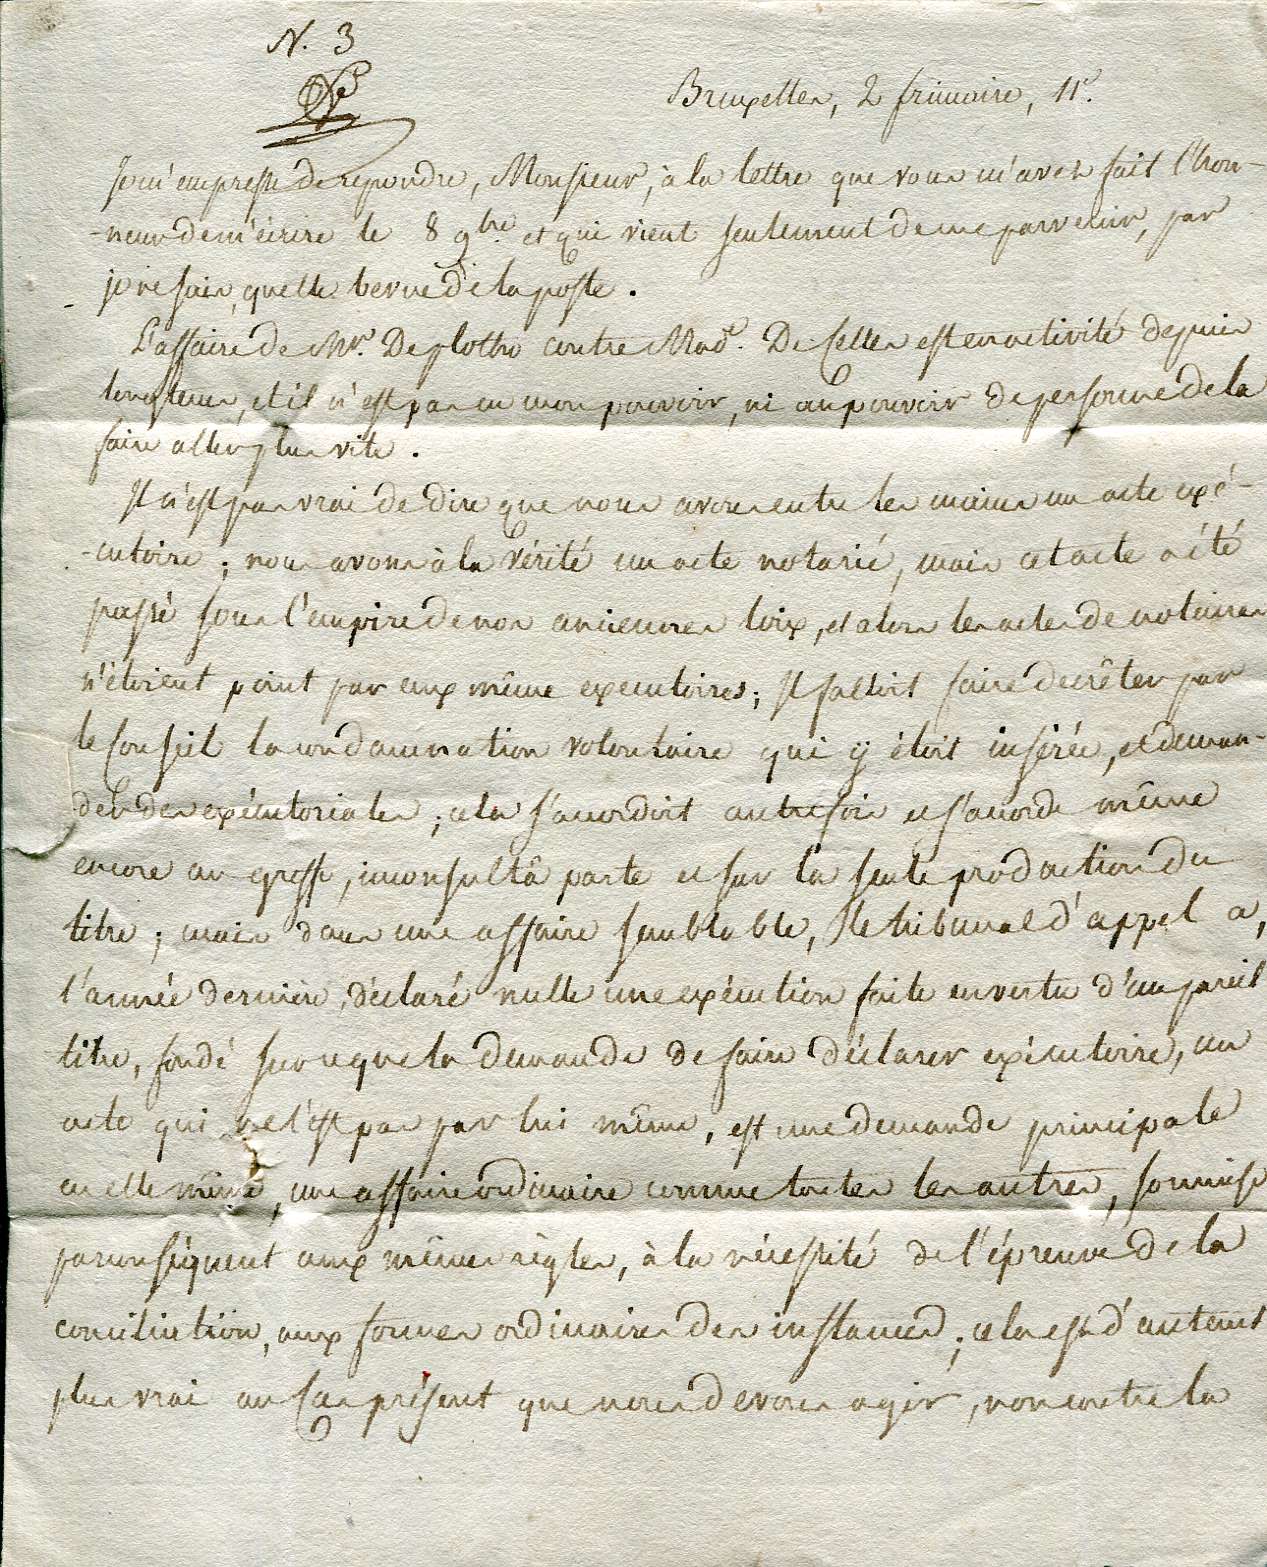 N. 3
Bruxelles, 2 frimaire, 11e.
Je m'empresse de repondre, Monsieur, à la lettre que vous m'avez fait l'hon-
-neur de m'écrire le 8 9bre. et qui vient seulement de me parvenir, par
je ne sais quelle bevue de la poste.
L'affaire de Mr. De plotho contre Made. De Celles est en activité depuis
longtems, et il n'est pas en mon pouvoir, ni au pouvoir de personne de la
faire aller plus vite.
Il n'est pas vrai de dire que nous avons entre les mains un acte exé-
-cutoire; nous avons à la vérité un acte notarié, mais cet acte a été
passé sous l'empire de nos anciennes loix, et alors les actes de notaires
n'étoient point par eux même executoires; Il falloit faire decrêter par
le Conseil la condamnation volontaire qui y étoit insérée, et deman-
der des exécutoriales; cela s'accordoit autrefois et s'accorde même
encore au greffe, inconsultâ parte et sur la seule production du
titre; mais dans une affaire semblable, le tribunal d'appel a,
l'année dernière, déclaré nulle une exécution faite en vertu d'un pareil
titre, fondé sur ce que la demande de faire déclarer exécutoire, un
acte qui ne l'est pas par lui même, est une demande principale
en elle même, une affaire ordinaire comme toutes les autres, soumise
par conséquent aux mêmes règles, à la nécessité de l'épreuve de la
conciliation, aux formes ordinaires des instances; cela est d'autant
plus vrai au Cas présent que nous devons agir, non contre la